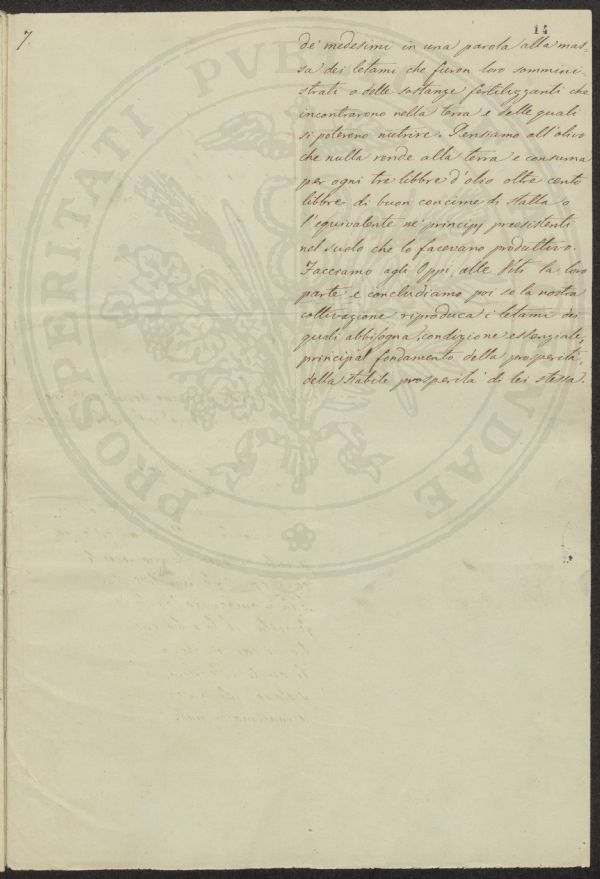 7.
14
de' medesimi in una parola alla mas-
sa dei letami che furon loro sommini
strati o delle sostanze fertilizzanti che
incontrarono nella terra e delle quali
si poterono nutrire. Pensiamo all'olivo
che nulla rende alla terra e consuma
per ogni tre libbre d'olio oltre cento
libbre di buon concime di stalla o
l'equivalente ne' principj preesistenti
nel suolo che lo facevano produttivo.
Facciamo agli Oppi, alle Viti la loro
parte e concludiamo poi se la nostra
coltivazione riproduca i letami dei
quali abbisogna, condizione essenziale,
principal fondamento della prosperità,
della stabile prosperità di lei stessa.
PROSPERITATI PVB
NDAE